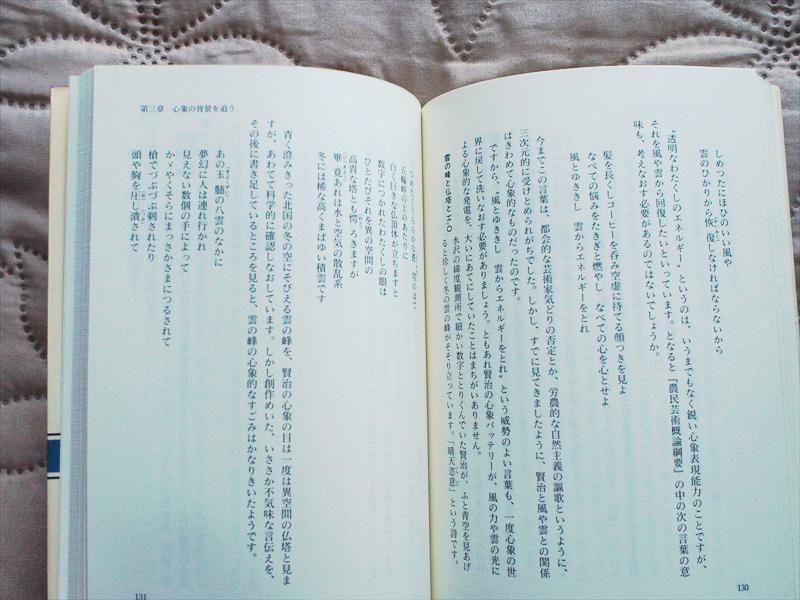 しめつたにほひのいい風や
雲のひかりから恢復しなければならないから
“透明なわたくしのエネルギー”というのは、いうまでもなく鋭い心象表現能力のことですが、
それを風や雲から回復したいといっています。となると『農民芸術概論綱要』の中の次の言葉の意
味も、考えなおす必要があるのではないでしょうか。
髪を長くしコーヒーを呑み空虚に待てる顔つきを見よ
なべての悩みをたきぎと燃やし なべての心を心とせよ
風とゆききし 雲からエネルギーをとれ
今までこの言葉は、都会的な芸術家気どりの否定とか、労農的な自然主義の謳歌というように、
三次元的に受けとめられがちでした。しかし、すでに見てきましたように、賢治と風や雲との関係
はきわめて心象的なものだったのです。
ですから、“風とゆききし 雲からエネルギーをとれ”という威勢のよい言葉も、一度心象の世
界に戻して洗いなおす必要がありましょう。ともあれ賢治の心象バッテリーが、風の力や雲の光に
よる心象的な発電を、大いにあてにしていたことはまちがいありません。
雲の峰と仏塔とエロ
水沢の緯度観測所で細かい数字ととりくんでいた賢治が、ふと青空を見あげ
ると珍しく冬の雲の峰がそそり立っています。「晴天恣意」という詩です。
130
第三章 心象の背景を追う
つめたくうららかな蒼穹のはて
五輪峠の上のあたりに
白く巨きな仏頂体が立ちますと
数字につかれたわたくしの眼は
ひとたびそれを異の空間の
高貴な塔とも愕ろきますが
畢竟あれは水と空気の散乱系
冬には稀な高くまばゆい積雲です
青く澄みきった北国の冬の空にそびえる雲の峰を、賢治の心象の目は一度は異空間の仏塔と見ま
すが、あわてて科学的に確認しなおしています。しかし創作めいた、いささか不気味な言伝えを、
その後に書き足しているところを見ると、雲の峰の心象的なすごみはかなりきいたようです。
あの玉髄の八雲のなかに
夢幻に人は連れ行かれ
見えない数個の手によって
かゞやくそらにまっさかさまにつるされて
槍でづぶづぶ刺されたり
頭や胸を圧し潰されて
131